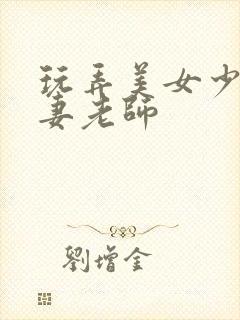 玩弄美女少
妻老師
劉增金